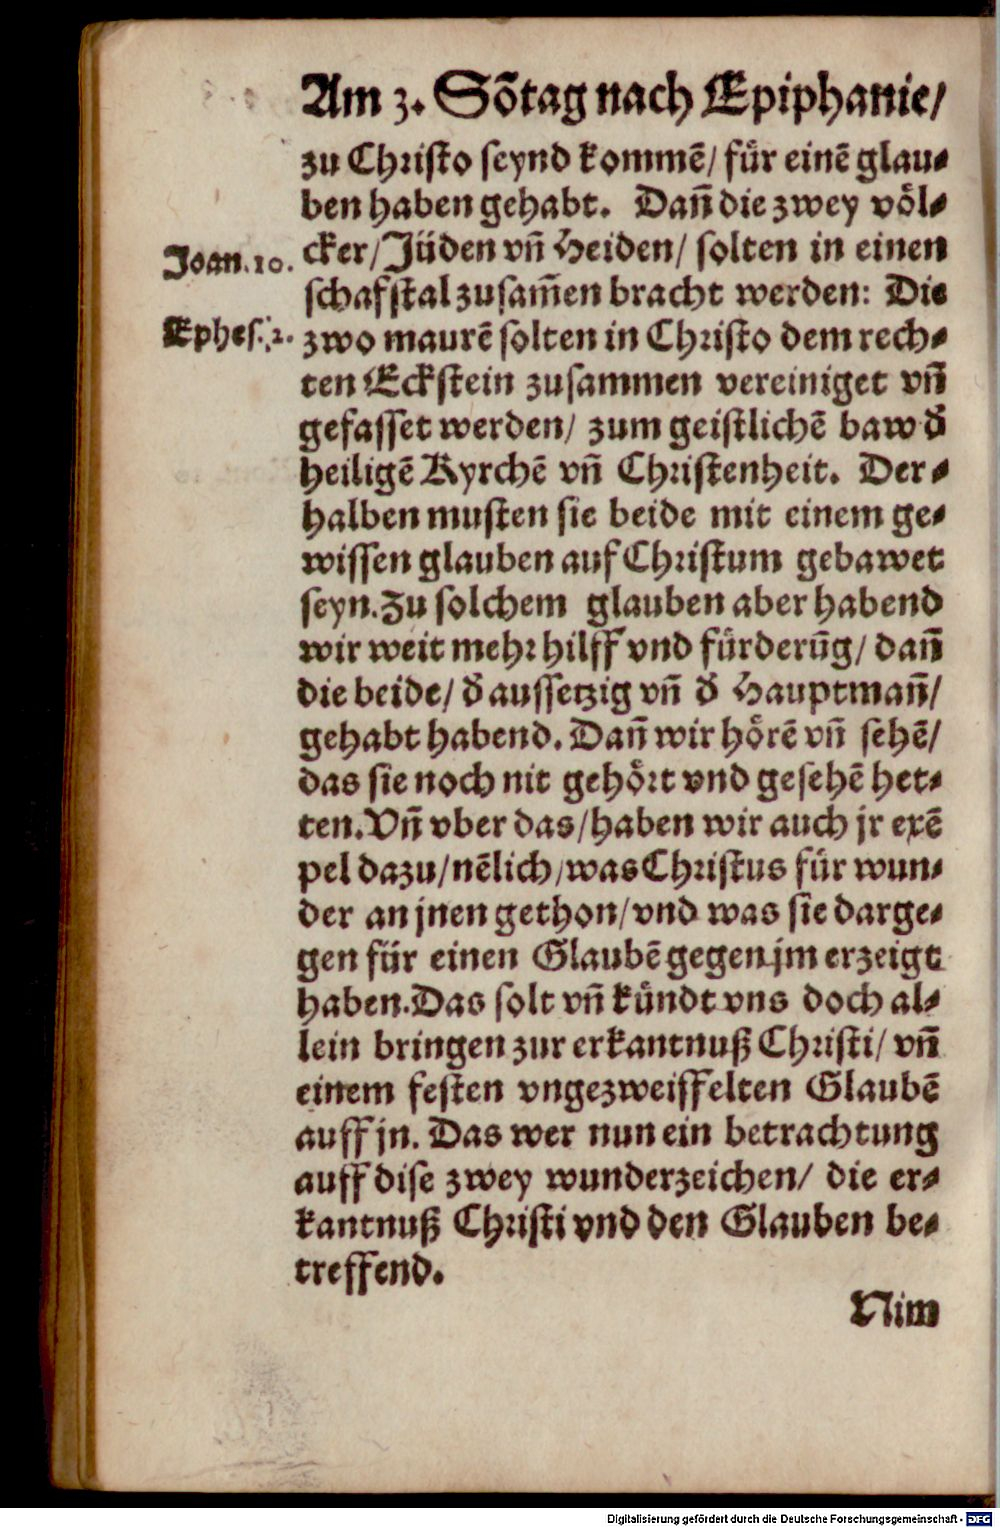 Am 3. Sõtag nach Epiphanie/
zu Christo seynd kommẽ/ für einẽ glau⸗
ben haben gehabt. Dañ die zwey völ⸗
Joan.10.
cker/ Jüden vñ Heiden/ solten in einen
schafstal zusam̃en bracht werden: Die
Ephes.2.
zwo maurẽ solten in Christo dem rech⸗
ten Eckstein zusammen vereiniget vñ
gefasset werden/ zum geistlichẽ baw d̃
heiligẽ Kyrchẽ vñ Christenheit. Der⸗
halben musten sie beide mit einem ge⸗
wissen glauben auf Christum gebawet
seyn. Zu solchem glauben aber habend
wir weit mehr hilff vnd fürderũg/ dañ
die beide/ d̃ aussetzig vñ d̃ Hauptmañ/
gehabt habend. Dañ wir hörẽ vñ sehẽ/
das sie noch nit gehört vnd gesehẽ het⸗
ten. Vñ vber das/ haben wir auch jr exẽ
pel dazu/ nẽlich/ was Christus für wun⸗
der an jnen gethon/ vnd was sie darge⸗
gen für einen Glaubẽ gegen jm erzeigt
haben. Das solt vñ kündt vns doch al⸗
lein bringen zur erkantnuß Christi/ vñ
einem festen vngezweiffelten Glaubẽ
auff jn. Das wer nun ein betrachtung
auff dise zwey wunderzeichen/ die er⸗
kantnuß Christi vnd den Glauben be⸗
treffend.
Nim
Digitalisierung gefördert durch die Deutsche Forschungsgemeinschaft - DFG